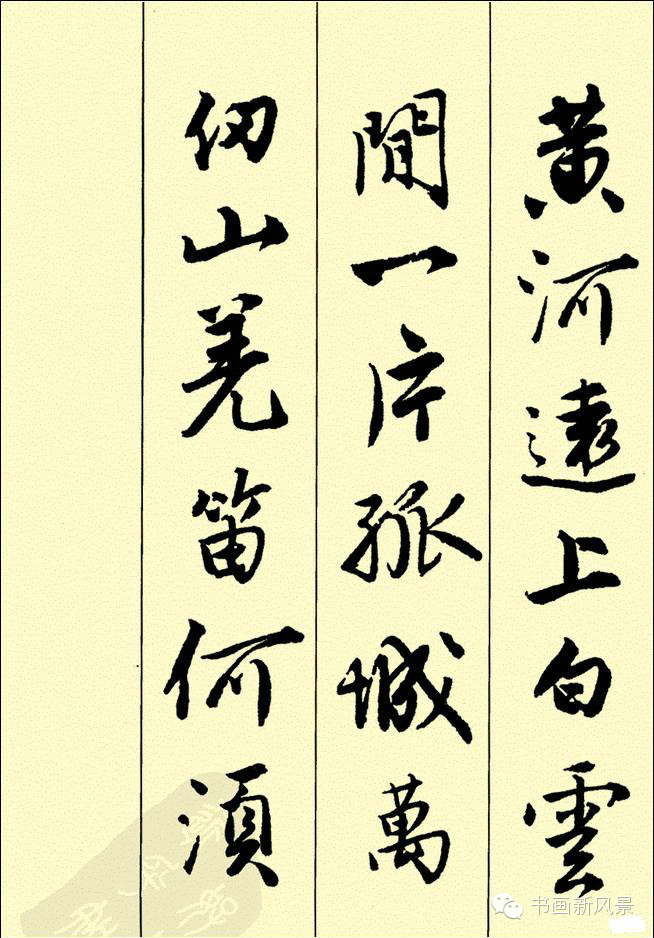 黄河遠上白雲
間一片孤城萬
仞山羌笛何須
书画新风景